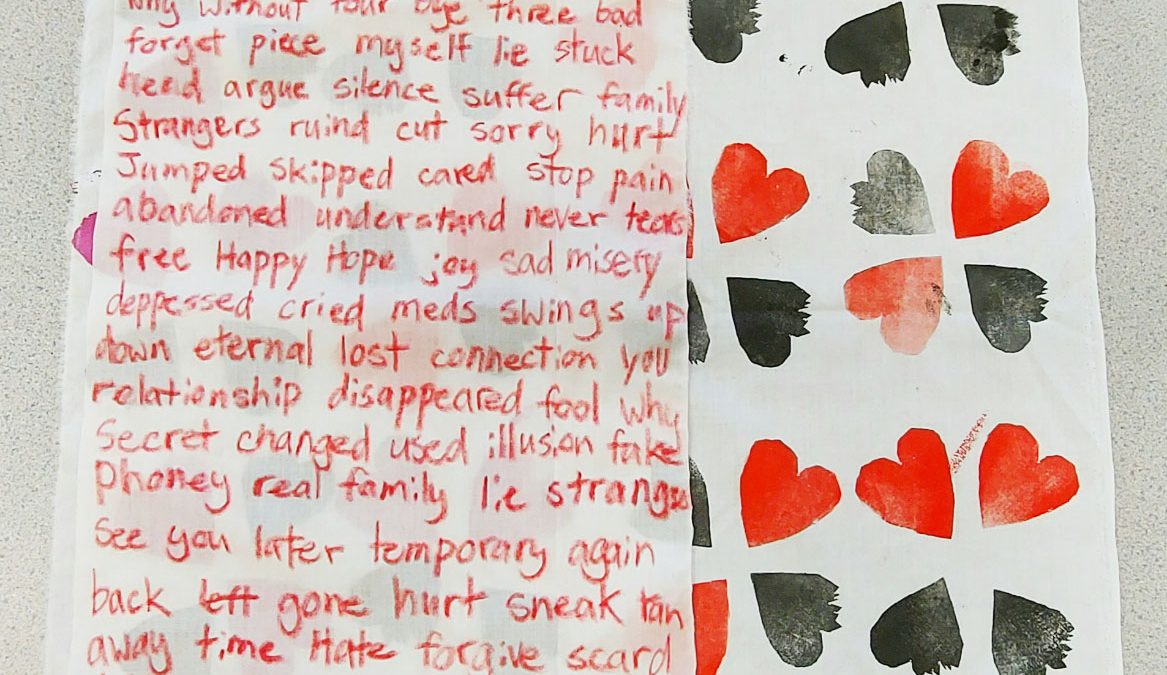 why without four bye three bad
forget piece myself lie stuck
heed argue silence suffer family
Strangers ruind cut sorry hurt
Jumped skipped cared stop pain
abandoned understand never tears
free Happy Hope joy sad misery
deppessed cried meds swings up
down eternal lost connection you
relationship disappeared fool why
Secret changed used illusion fake
Phoney real family lie strangers
See you later temporary again
back left gone hurt sneak ran
away time Hate forgive scard